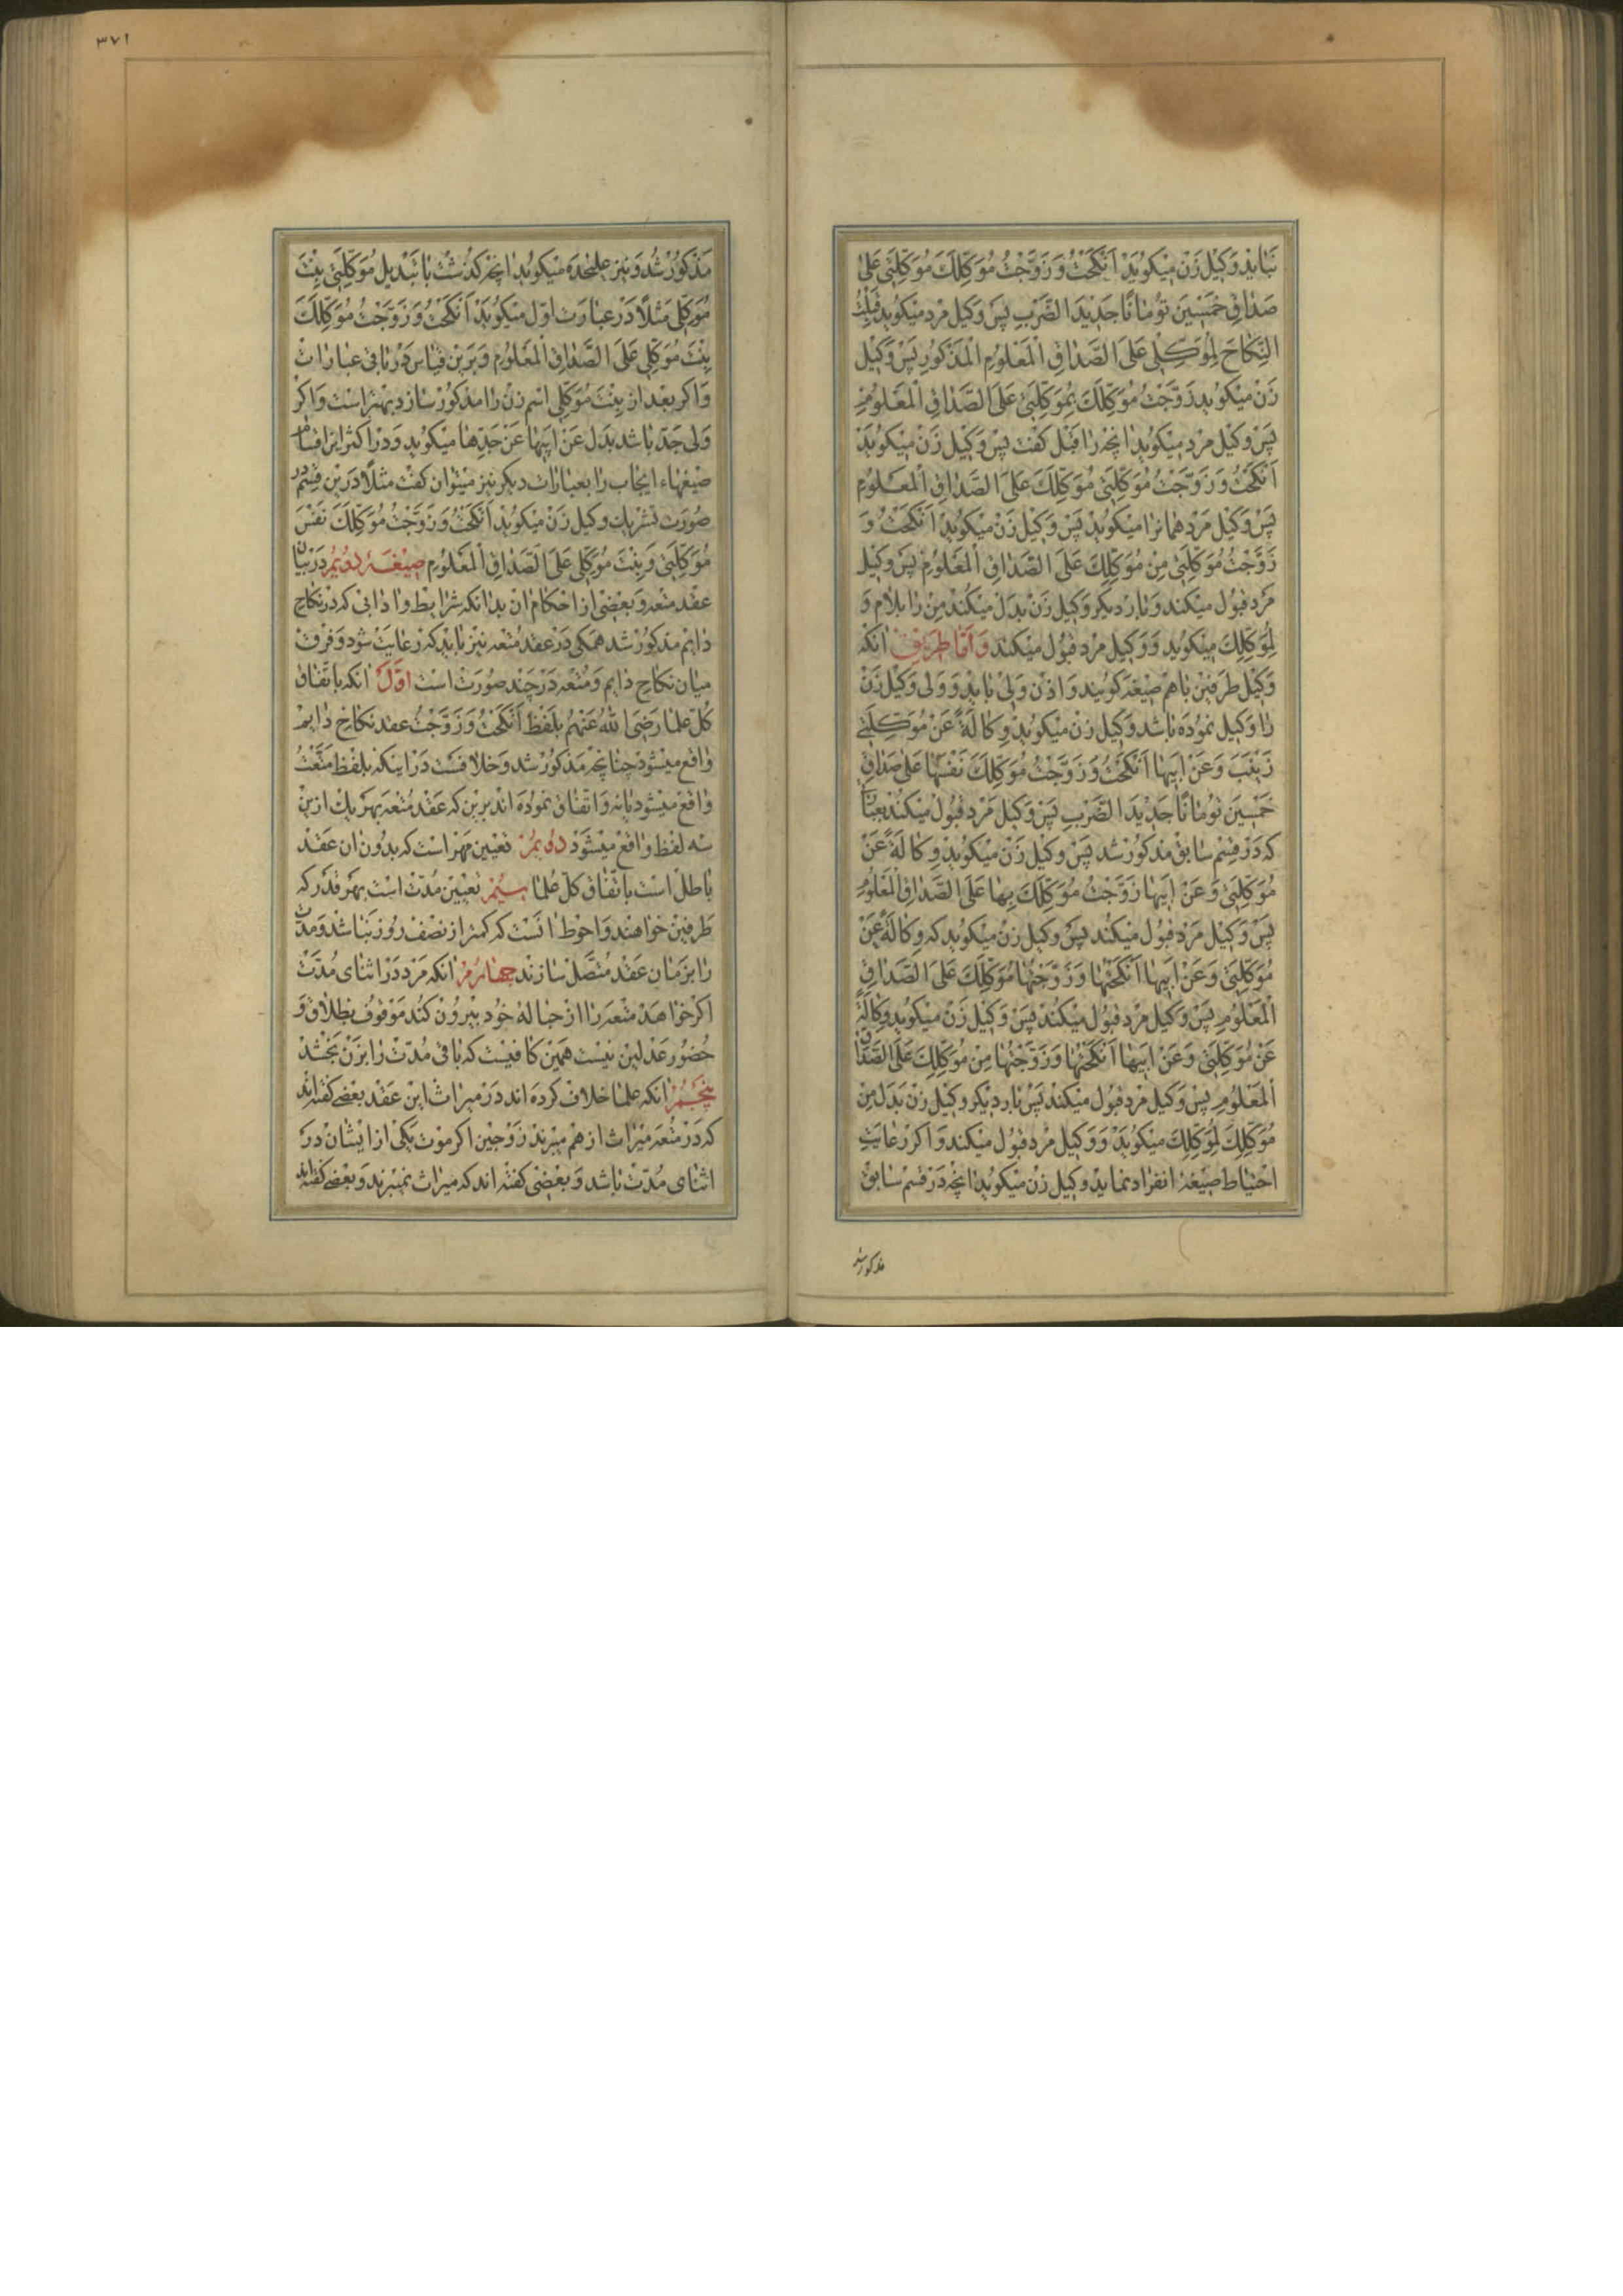 نباید وکیل زن میکوید اَنْکَحْتُ وَ زَوَّجْتُ مُوَکِّلَكَ مُوَکِّلَتی عَلیٰ
صَداقِ خَمْسینَ تُوماناً جَدیدَ الضَّرْبِ پس وکیل مرد میکوید قَبِلْتُ
النِّکاحَ لِمُوَکِّلی عَلَی الصَّداقِ الْمَعْلُومِ الْمَذْکُورِ پس وکیل
زن میکوید زَوَّجْتُ مُوَکِّلَكَ بِمُوَکِّلَتی عَلَی الصَّداقِ الْمَعْلُومِ
پس وکیل مرد میکوید انچه را قبل کفت پس وکیل زن میکوید
اَنْکَحْتُ وَ زَوَّجْتُ مُوَکِّلَتی مُوَکِّلَكَ عَلَی الصَّداقِ الْمَعْلُومِ
پس وکیل مرد همانرا میکوید پس وکیل زن میکوید اَنْکَحْتُ وَ
زَوَّجْتُ مُوَکِّلَتی مِنْ مُوَکِّلِكَ عَلَی الصَّداقِ الْمَعْلُومِ پس وکیل
مرد قبول میکند و بار دیکر وکیل زن بدل میکند مِنْ را بلام و
لِمُوَکِّلِكَ میکوید و وکیل مرد قبول میکند و اما طریق انکه
وکیل طرفین باهم صیغه کویند و اذن ولی باید و ولی وکیل زن
را وکیل نموده باشد وکیل زن میکوید وِکالَةً عَنْ مُوَکِّلَتی
زَیْنَبَ وَ عَنْ اَبیها اَنْکَحْتُ وَ زَوَّجْتُ مُوَکِّلَكَ نَفْسَها عَلیٰ صَداقِ
خَمْسینَ تُوماناً جَدیدَ الضَّرْبِ پس وکیل مرد قبول میکند بعبا
که در قسم سابق مذکور شد پس وکیل زن میکوید وِکالَةً عَنْ
مُوَکِّلَتی وَ عَنْ اَبیها زَوَّجْتُ مُوَکِّلَكَ بِها عَلَی الصَّداقِ الْمَعْلُومِ
پس وکیل مرد قبول میکند پس وکیل زن میکوید که وِکالَةً عَنْ
مُوَکِّلَتی وَ عَنْ اَبیها اَنْکَحْتُها وَ زَوَّجْتُها مُوَکِّلَكَ عَلَی الصَّداقِ
الْمَعْلُومِ پس وکیل مرد قبول میکند پس وکیل زن میکوید وِکالَةً
عَنْ مُوَکِّلَتی وَ عَنْ اَبیها اَنْکَحْتُها وَ زَوَّجْتُها مِنْ مُوَکِّلِكَ عَلَی الصَّداقِ
الْمَعْلُومِ پس وکیل مرد قبول میکند پس بار دیکر وکیل زن بدل مِنْ
مُوَکِّلِكَ لِمُوَکِّلِكَ میکوید و وکیل مرد قبول میکند و اکر رعایت
احتیاط صیغهٔ انفراد نماید وکیل زن میکوید انچه در قسم سابق
مذکور شد
۳۷۱
مذکور شد و نیز علیحده میکوید انچه کذشت با تبدیل مُوَکِّلَتی بِنْتَ
مُوَکِّلی مثلاً در عبارت اول میکوید اَنْکَحْتُ وَ زَوَّجْتُ مُوَکِّلَكَ
بِنْتَ مُوَکِّلی عَلَی الصَّداقِ الْمَعْلُومِ و برین قیاس در باقی عبارات
و اکر بعد از بِنْتَ مُوَکِّلی اسم زن را مذکور سازد بهتر است و اکر
ولی جد باشد بدل عَنْ اَبیها عَنْ جَدِّها میکوید و در اکثر این اقسام
صیغهاء ایجاب را بعبارات دیکر نیز میتوان کفت مثلاً درین قسم در
صورت تشریك وکیل زن میکوید اَنْکَحْتُ وَ زَوَّجْتُ مُوَکِّلَكَ نَفْسَ
مُوَکِّلَتی وَ بِنْتَ مُوَکِّلی عَلَی الصَّداقِ الْمَعْلُومِ صیغهٔ دویم در بیان
عقد متعه و بعضی از احکام ان بدانکه شرایط و ادابی که در نکاح
دایم مذکور شد همکی در عقد متعه نیز باید که رعایت شود و فرق
میان نکاح دایم و متعه در چند صورت است اوّل انکه باتفاق
کل علما رضی الله عنهم بلفظ اَنْکَحْتُ وَ زَوَّجْتُ عقد نکاح دایم
واقع میشود چنانچه مذکور شد و خلافست در اینکه بلفظ مَتَّعْتُ
واقع میشود یا نه و اتفاق نموده اند برین که عقد متعه بهر یك ازین
سه لفظ واقع میشود دویم تعیین مهر است که بدون ان عقد
باطل است باتفاق کل علما سیم تعیین مدت است بهر قدر که
طرفین خواهند و احوط انست که کمتر از نصف روز نباشد و مدت
را بزمان عقد متصل سازند چهارم انکه مرد در اثنای مدت
اکر خواهد متعه را از حباله خود بیرون کند موقوف بطلاق و
حضور عدلین نیست همین کافیست که باقی مدت را بزن بخشد
پنجم انکه علما خلاف کرده اند در میراث این عقد بعضی کفته اند
که در متعه میراث از هم میبرند زوجین اکر موت یکی از ایشان در
اثنای مدت باشد و بعضی کفته اند که میراث نمیبرند و بعضی کفته اند